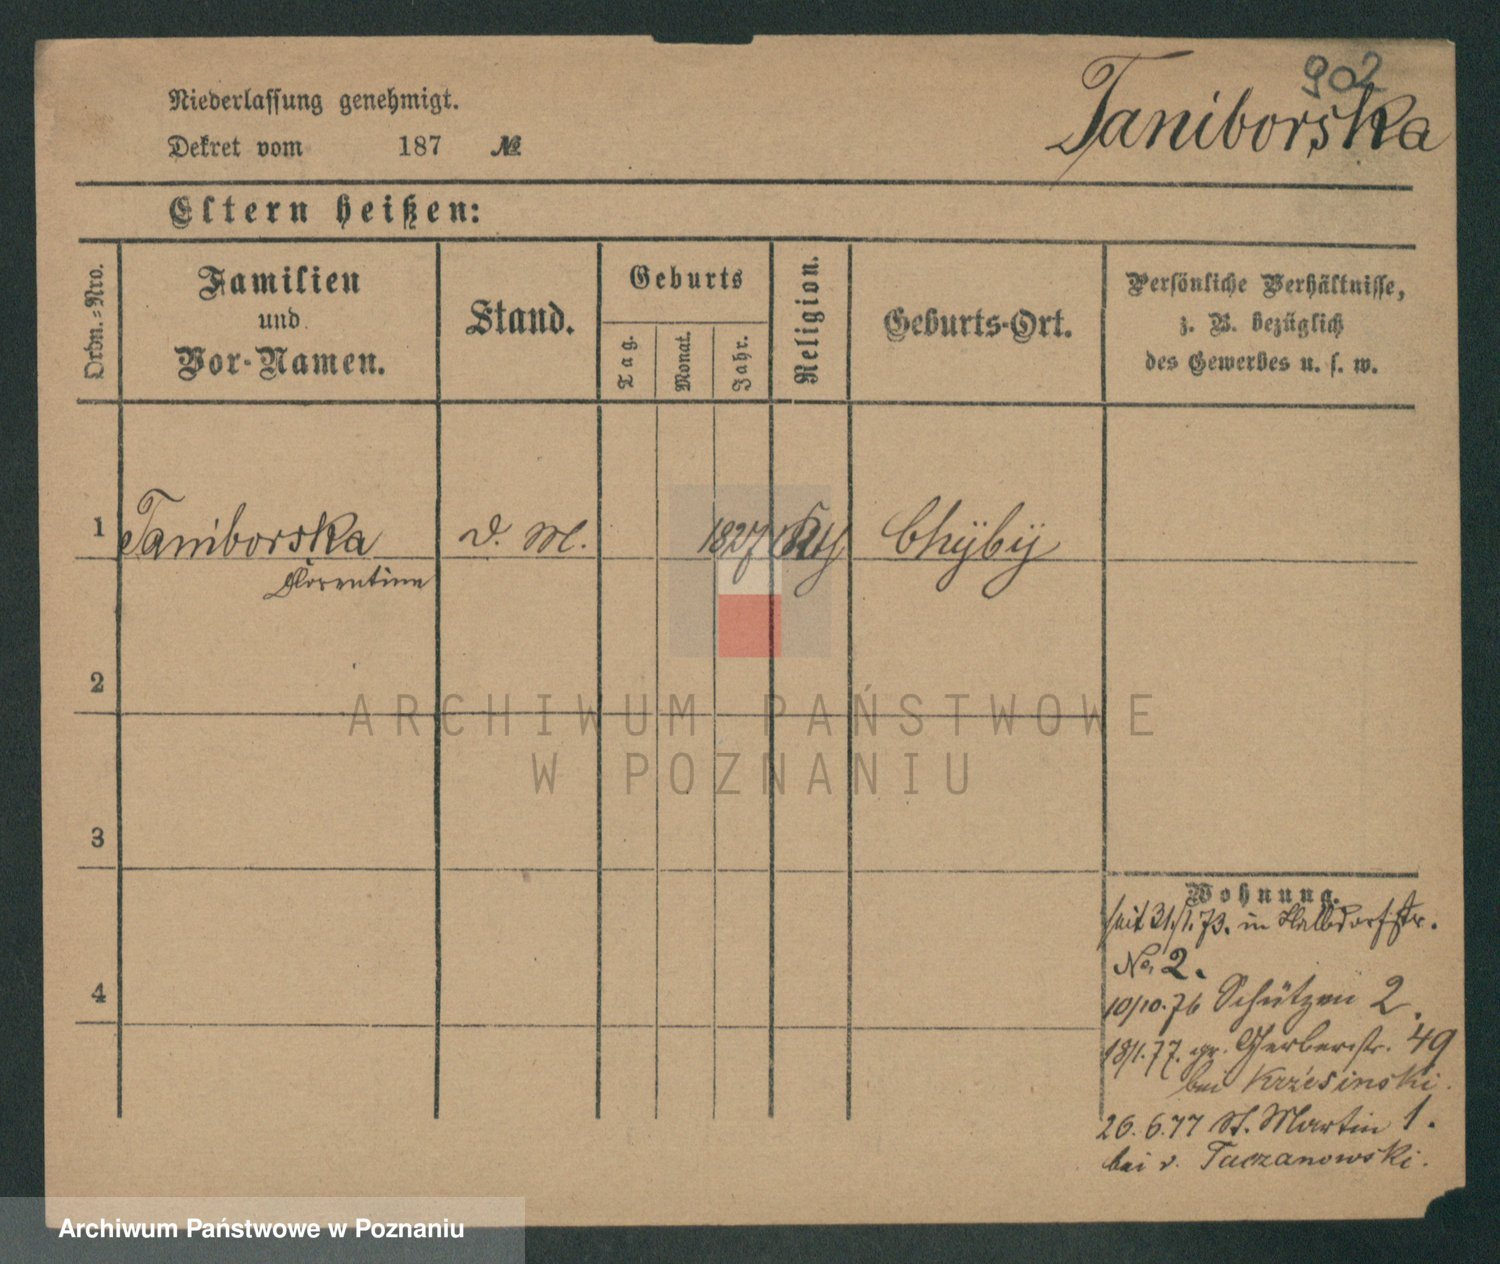 902
Niederlassung genehmigt.
Taniborska
Dekret vom 187 №
Eltern heißen:
Ordn.-Nro.
Familien
und
Vor-Namen.
Stand.
Geburts
Tag.
Monat.
Jahr.
Religion.
Geburts-Ort.
Persönliche Verhältnisse,
z. B. bezüglich
des Gewerbes u. s. w.
1 Taniborska d. M. 1827 Chÿbÿ
Florentine
2
ARCHIWUM PAŃSTWOWE
W POZNANIU
3
Wohnung.
seit 31/1.73. in Halbdorfstr.
No. 2.
4
10/10.76 Schützen 2.
18/1.77. gr. Gerberstr. 49
bei Krzesinski.
26.6.77 St. Martin 1.
bei v. Taczanowski.
Archiwum Państwowe w Poznaniu